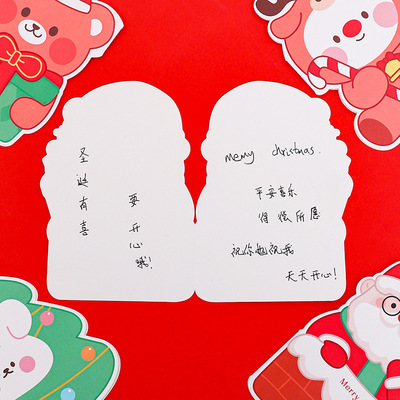 圣诞有喜
要开心哦!
merry christmas.
平安喜乐
得偿所愿
祝你如祝我
天天开心!
Merry